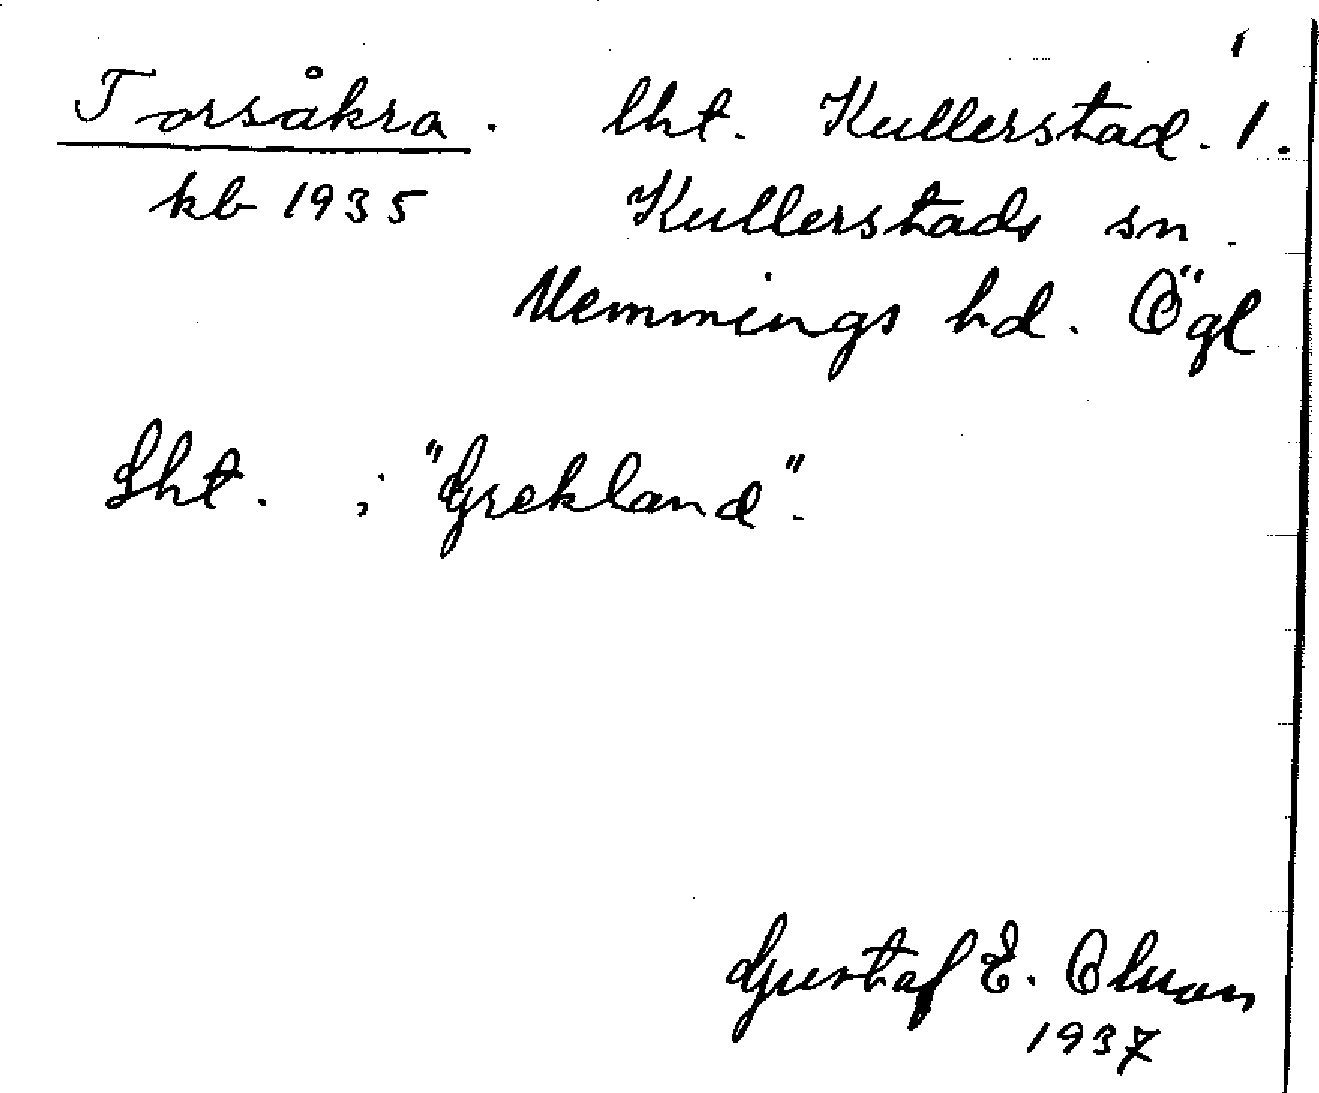 Torsåkra. lht. Kullerstad. 1.
kb 1935 Kullerstads sn.
Memmings hd. Ögl
Lht. i "Grekland".
Gustaf E. Olsson
1937